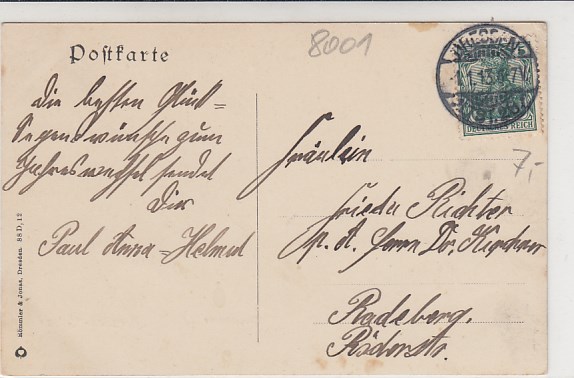 8001
Postkarte
DRESDEN
DEUTSCHES REICH
7,-
Die besten Glück=
Segenswünsche zum
Jahreswechsel sendet
Dir
Paul Anna-Helmut
Fräulein
Frieda Richter
p. A. Herrn Dr. Kirchner
Radeberg.
Röderstr.
Römmler & Jonas, Dresden 88 D, 12